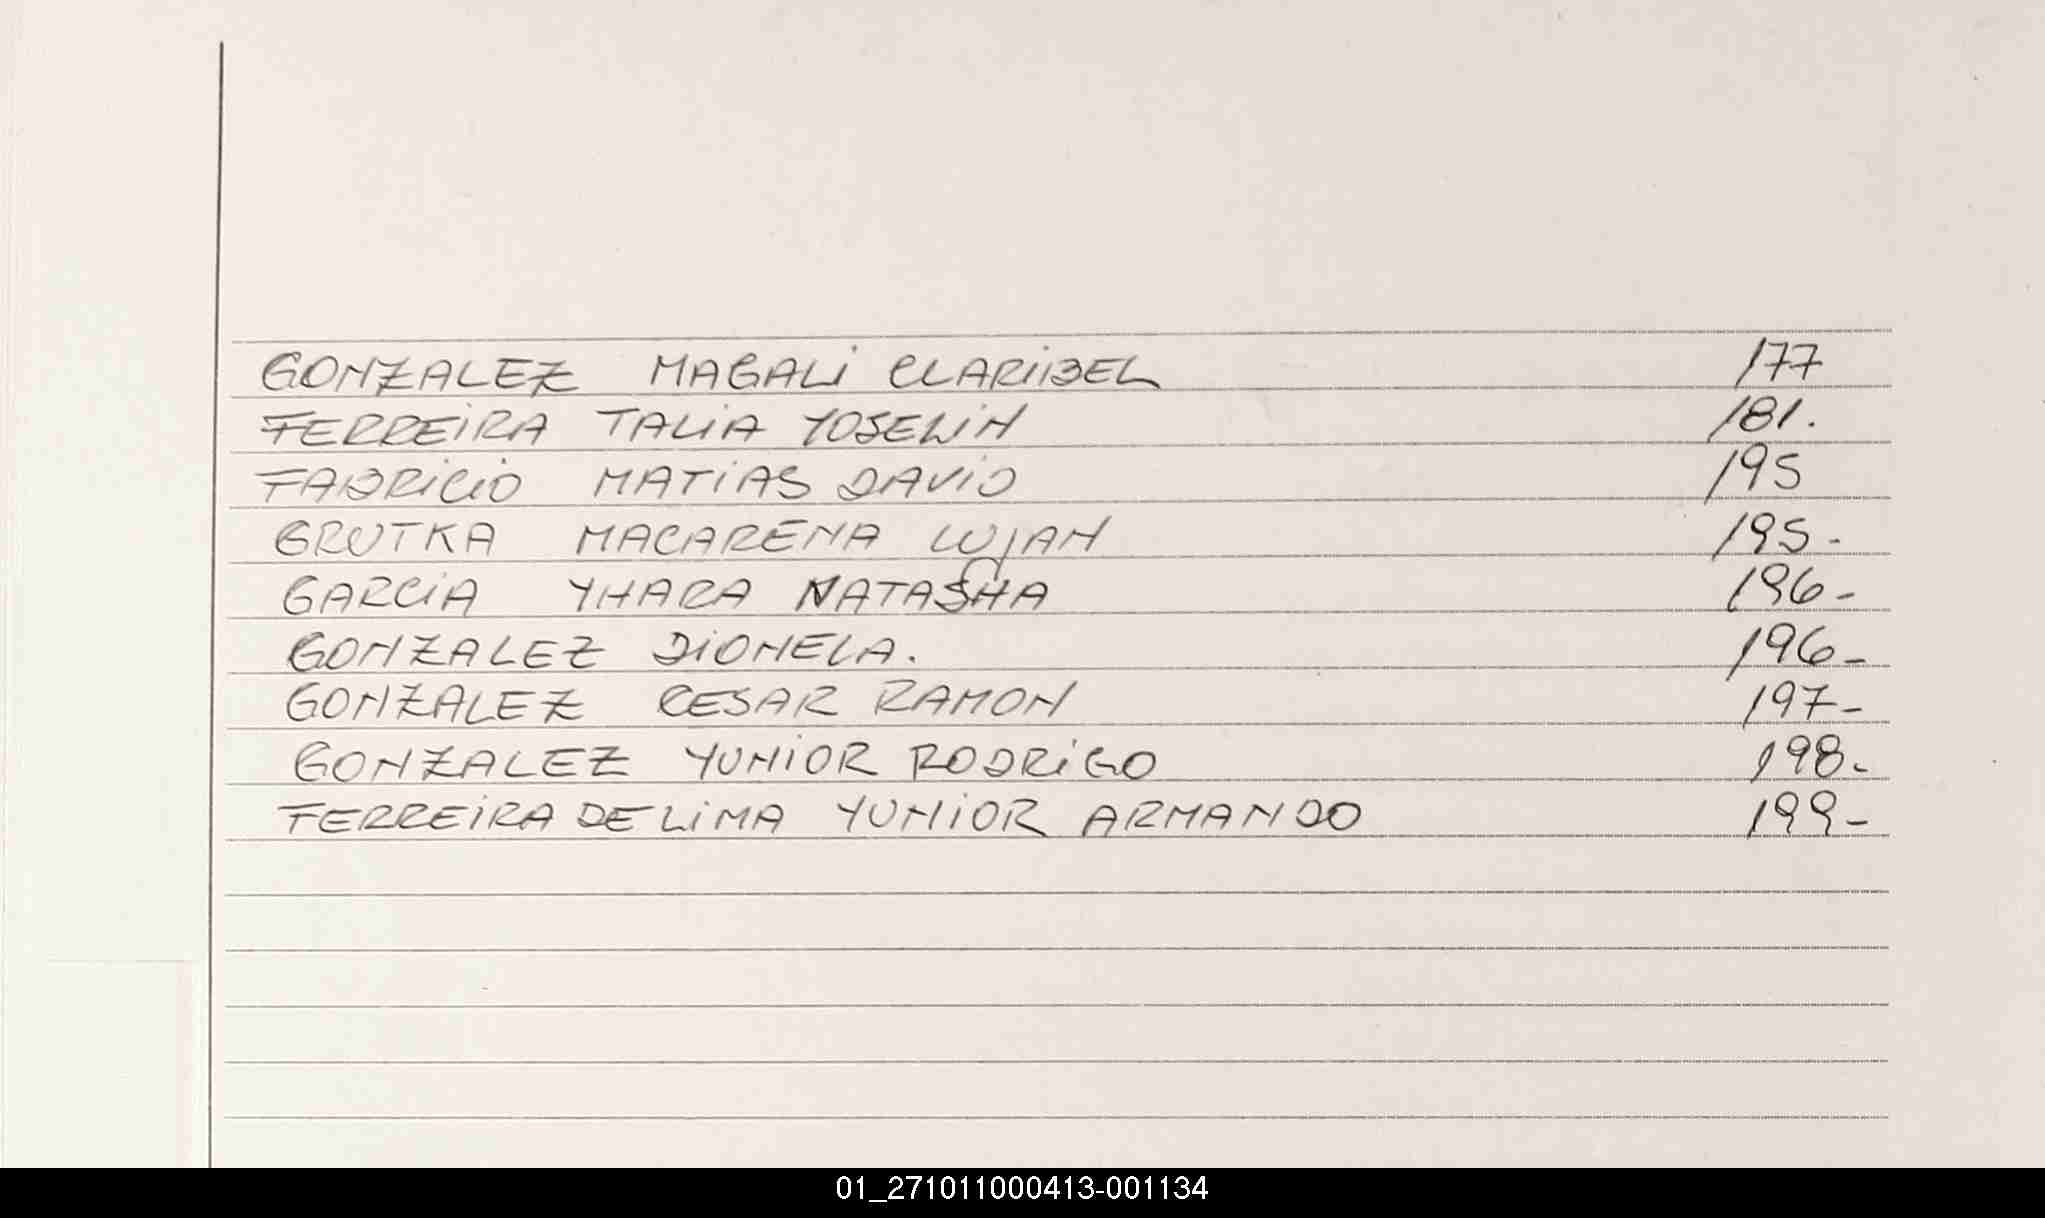 GONZALEZ MAGALI CLARIBEL 177
FERREIRA TALIA YOSELIN 181.
FABRICIO MATIAS DAVID 195
GRUTKA MACARENA LUJAN 195-
GARCIA YHARA NATASHA 196-
GONZALEZ DIONELA. 196-
GONZALEZ CESAR RAMON 197-
GONZALEZ YUNIOR RODRIGO 198-
FERREIRA DE LIMA YUNIOR ARMANDO 199-
01_271011000413-001134